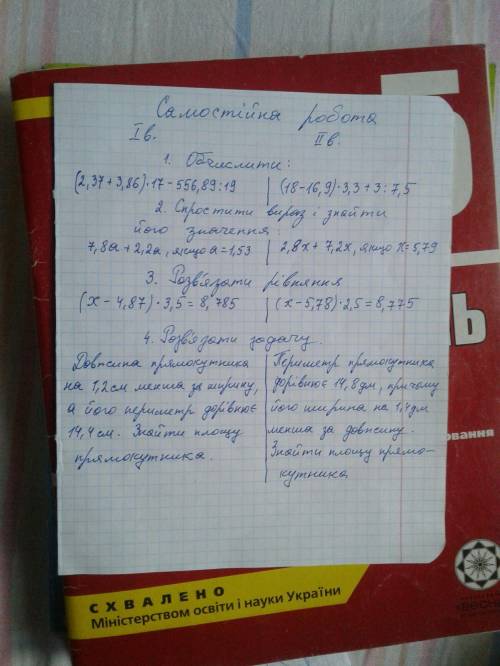 Самостійна робота
Iв. IIв.
1. Обчислити:
(2,37+3,86)·17-556,89:19 (18-16,9)·3,3+3:7,5
2. Спростити вираз і знайти
його значення
7,8а+2,2а, якщо а=1,53 2,8х+7,2х, якщо х=5,79
3. Розв'язати рівняння
(х-4,87)·3,5=8,785 (х-5,78)·2,5=8,775
4. Розв'язати задачу.
Довжина прямокутника
на 1,2см менша за ширину,
а його периметр дорівнює
14,4см. Знайти площу
прямокутника.
Периметр прямокутника
дорівнює 14,8дм, причому
його ширина на 1,4дм
менша за довжину.
Знайти площу прямо-
кутника
5
Ь
ювання
СХВАЛЕНО
Міністерством освіти і науки України